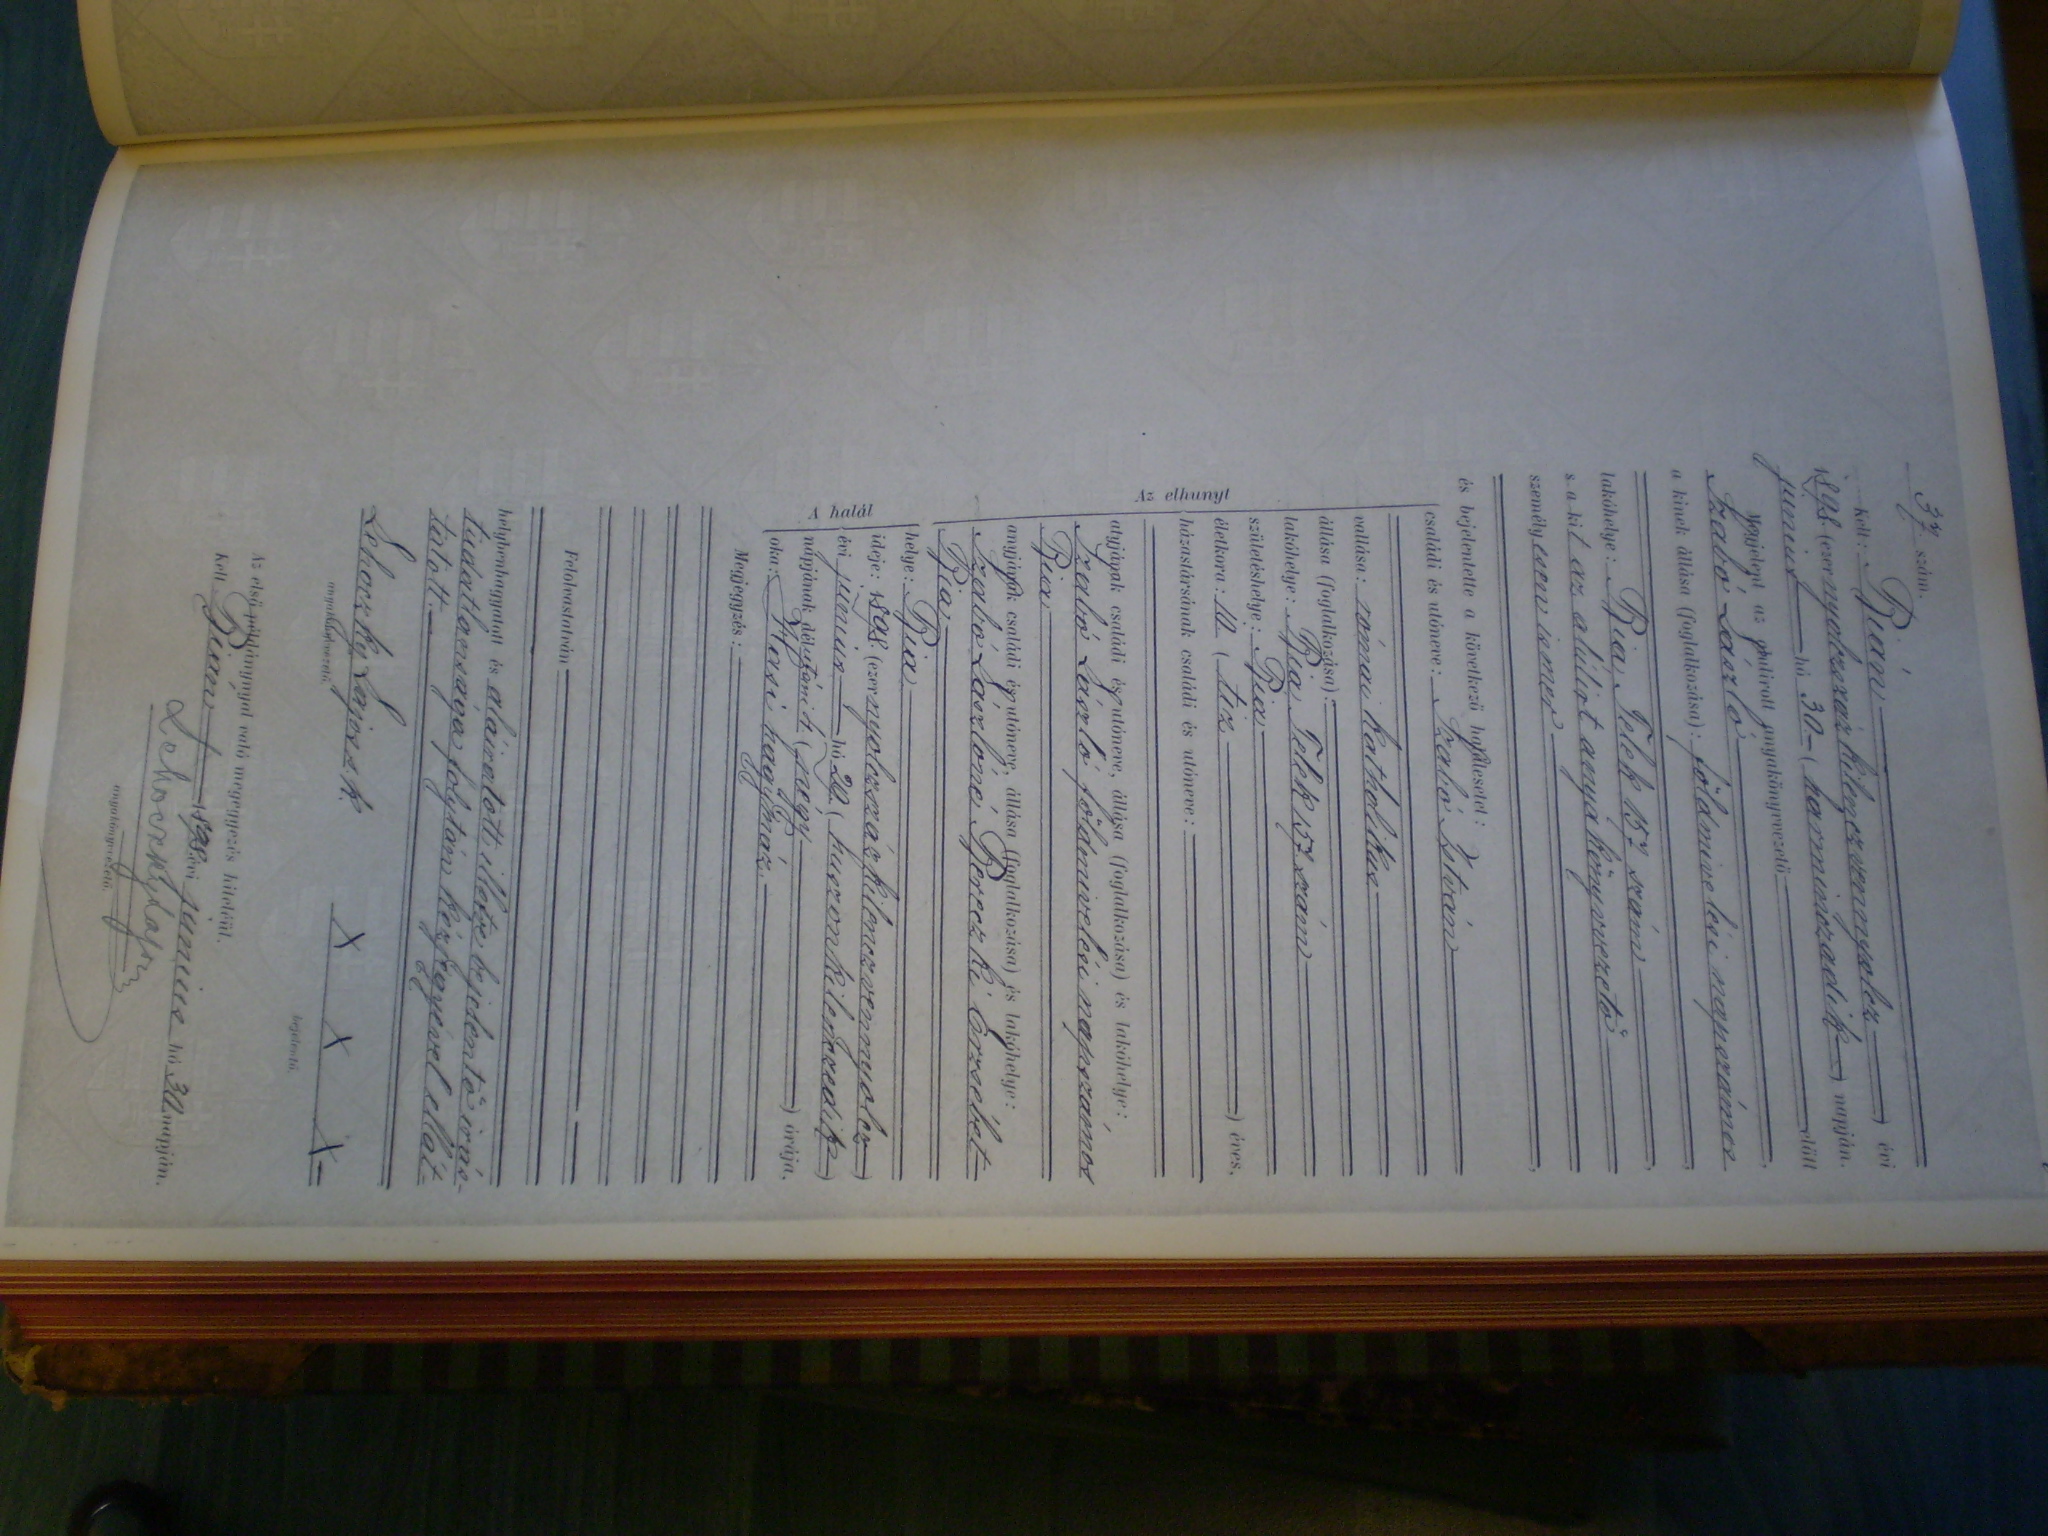 37 szám.
Kelt: Bián, 
1898. (ezernyolczszázkilenczvennyolcz) évi
junius hó 30 (harminczadik) napján.
Megjelent az alulirott anyakönyvvezető előtt
Szabó László,
a kinek állása (foglalkozása): földmivelési napszámos
lakóhelye: Bia, Telek 157 szám,
s a kit az alulirt anyakönyvvezető
személyesen ismer,
és bejelentette a következő halálesetet:
Az elhunyt
családi és utóneve: Szabó István
vallása: római katholikus
állása (foglalkozása):
lakóhelye: Bia, Telek 157 szám
születéshelye: Bia
életkora: 10 (tiz) éves.
házastársának családi és utóneve:
atyjának családi és utóneve, állása (foglalkozása) és lakóhelye:
Szabó László földmivelési napszámos
Bia
anyjának családi és utóneve, állása (foglalkozása) és lakóhelye:
Szabó Lászlóné Erzsébet
Bia,
A halál
helye: Bia
ideje: 1898. (ezernyolczszázkilenczvennyolcz)
évi junius hó 29. (huszonkilenczedik)
napjának délutáni 4 (négy) órája.
oka: Hasi hagymáz.
Megjegyzés:
Felolvastatván
helybenhagyatott és aláiratott, illetve bejelentő irás-
tudatlansága folytán kézjegyével ellát-
tatott.
Lehoczky Lajos s. k.
anyakönyvvezető.
X X X
bejelentő.
Az első példánynyal való megegyezés hiteléül.
Kelt Bián, 1898. évi junius hó 30. napján.
Lehoczky Lajos
anyakönyvvezető.